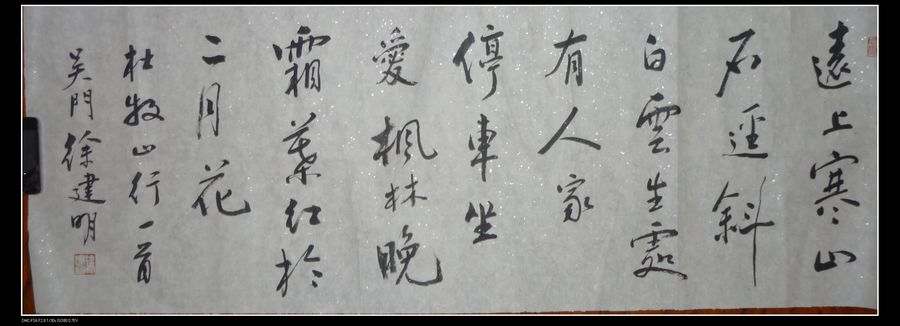 遠上寒山
石逕斜
白雲生處
有人家
停車坐
愛楓林晚
霜葉紅於
二月花
杜牧山行一首
吴門徐建明